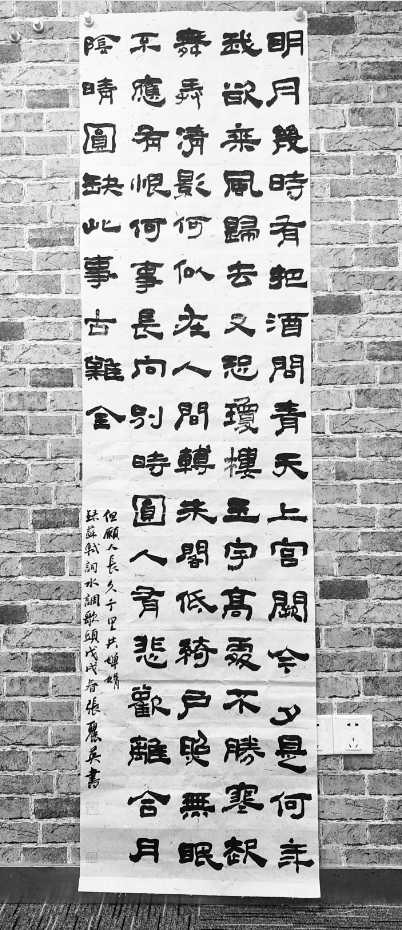 明月幾時有把酒問青天上宮闕今夕是何年
我欲乘風歸去又恐瓊樓玉宇高處不勝寒起
舞弄清影何似在人間轉朱閣低綺戶照無眠
不應有恨何事長向別時圓人有悲歡離合月
陰晴圓缺此事古難全
但願人長久千里共嬋娟
錄蘇軾詞水調歌頭戊戌春張麗英書